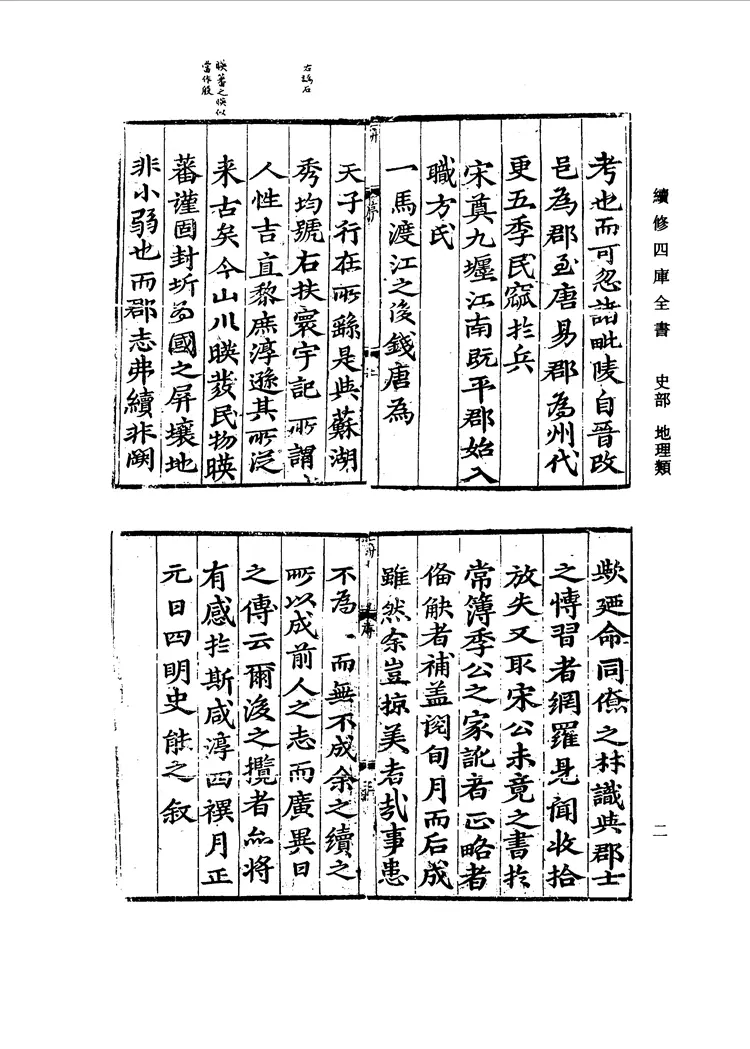 續修四庫全書 史部 地理類
二
考也而可忽諸毗陵自晉改
邑為郡至唐易郡為州代
更五季民寙扵兵
宋奠九壥江南既平郡始入
職方氏
一馬渡江之後錢唐為
天子行在所繇是與蘇湖
秀均號右扶寰宇記所謂
人性吉直黎庶淳遜其所泛
来古矣今山川暎發民物暎
蕃謹固封圻為國之屏壤地
非小弱也而郡志弗續非闕
歟廼命同僚之材識與郡士
之慱習者網羅見聞收拾
放失又取宋公未竟之書扵
常簿季公之家訛者正略者
俻缺者補盖閲旬月而后成
雖然余豈掠美者㢤事患
不為 而無不成余之續之
所以成前人之志而廣異日
之傳云爾後之攬者亦將
有感扵斯咸淳四禩月正
元日四明史能之叙
右譌石
暎蕃之暎似
當作殷
序
序